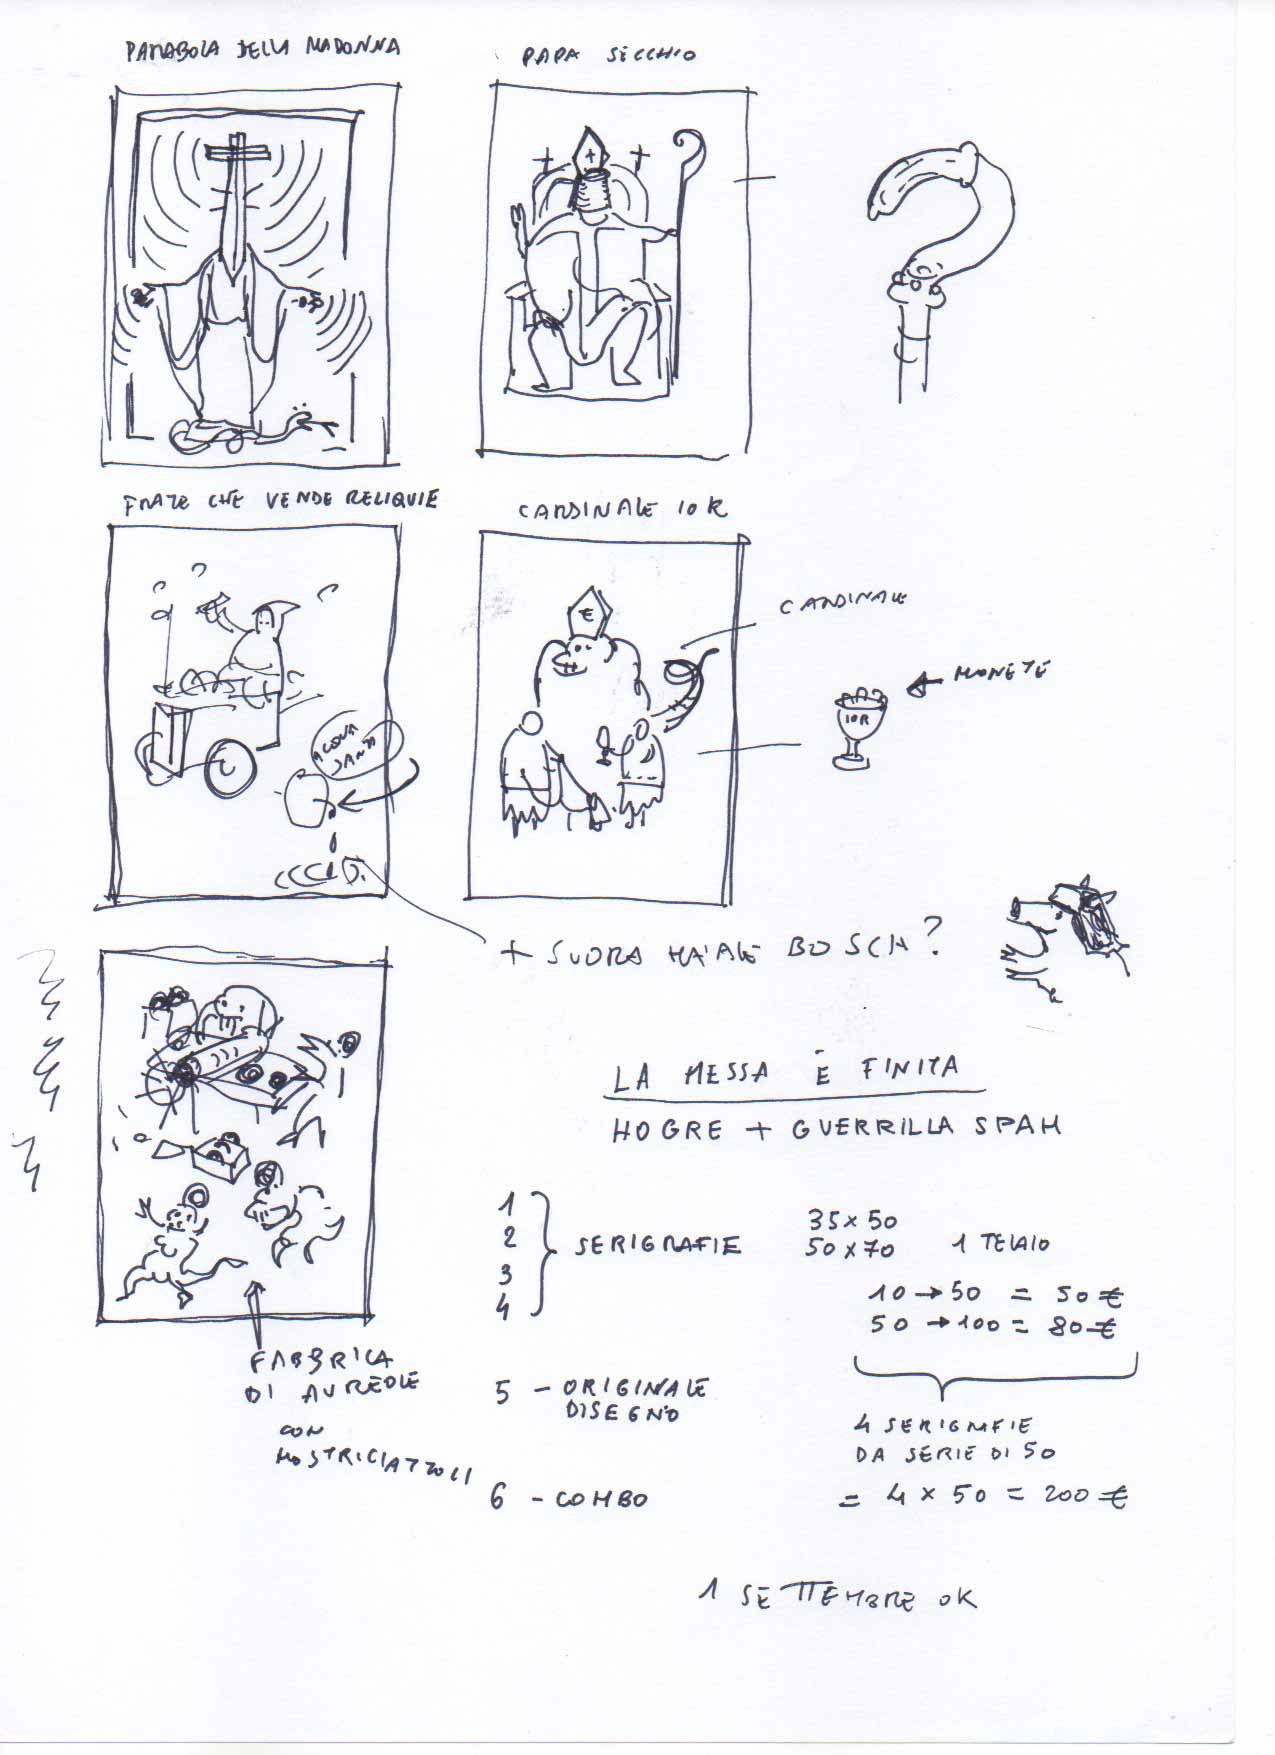 PARABOLA DELLA MADONNA
PAPA SECCHIO
FRATE CHE VENDE RELIQUIE
CARDINALE 10K
€
CARDINALE
ACQUA
SANTA
MONETE
10K
+ SUORA MAIALE BOSCH?
LA MESSA È FINITA
HOGRE + GUERRILLA SPAM
1
2
3
4
SERIGRAFIE
35×50
50×70
1 TELAIO
10 → 50 = 50€
50 → 100 = 80€
FABBRICA
DI AUREOLE
CON
MOSTRICIATTOLI
5 - ORIGINALE
DISEGNO
4 SERIGRAFIE
DA SERIE DI 50
= 4 × 50 = 200€
6 - COMBO
1 SETTEMBRE OK